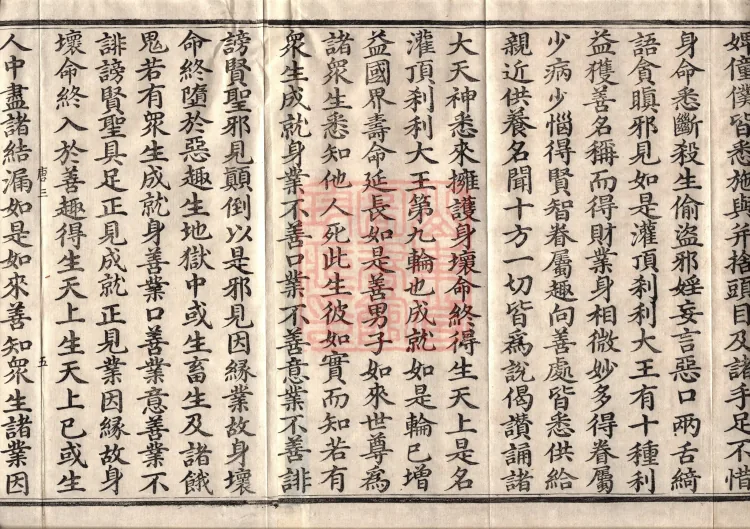 僮僕皆悉施與并捨頭目及諸手足不惜
身命悉斷殺生偷盜邪婬妄言惡口兩舌綺
語貪瞋邪見如是灌頂剎利大王有十種利
益獲善名稱而得財業身相微妙多得眷屬
少病少惱得賢智眷屬趣向善處皆悉供給
親近供養名聞十方一切皆為說偈讚誦諸
大天神悉來擁護身壞命終得生天上是名
灌頂剎利大王第九輪也成就如是輪已增
益國界壽命延長如是善男子如來世尊為
諸眾生悉知他人死此生彼如實而知若有
眾生成就身業不善口業不善意業不善誹
謗賢聖邪見顛倒以是邪見因緣業故身壞
命終隨於惡趣生地獄中或生畜生及諸餓
鬼若有眾生成就身善業口善業意善業不
誹謗賢聖具足正見成就正見業因緣故身
壞命終入於善趣得生天上生天上已或生
唐三 五
人中盡諸結漏如是如來善知眾生諸業因